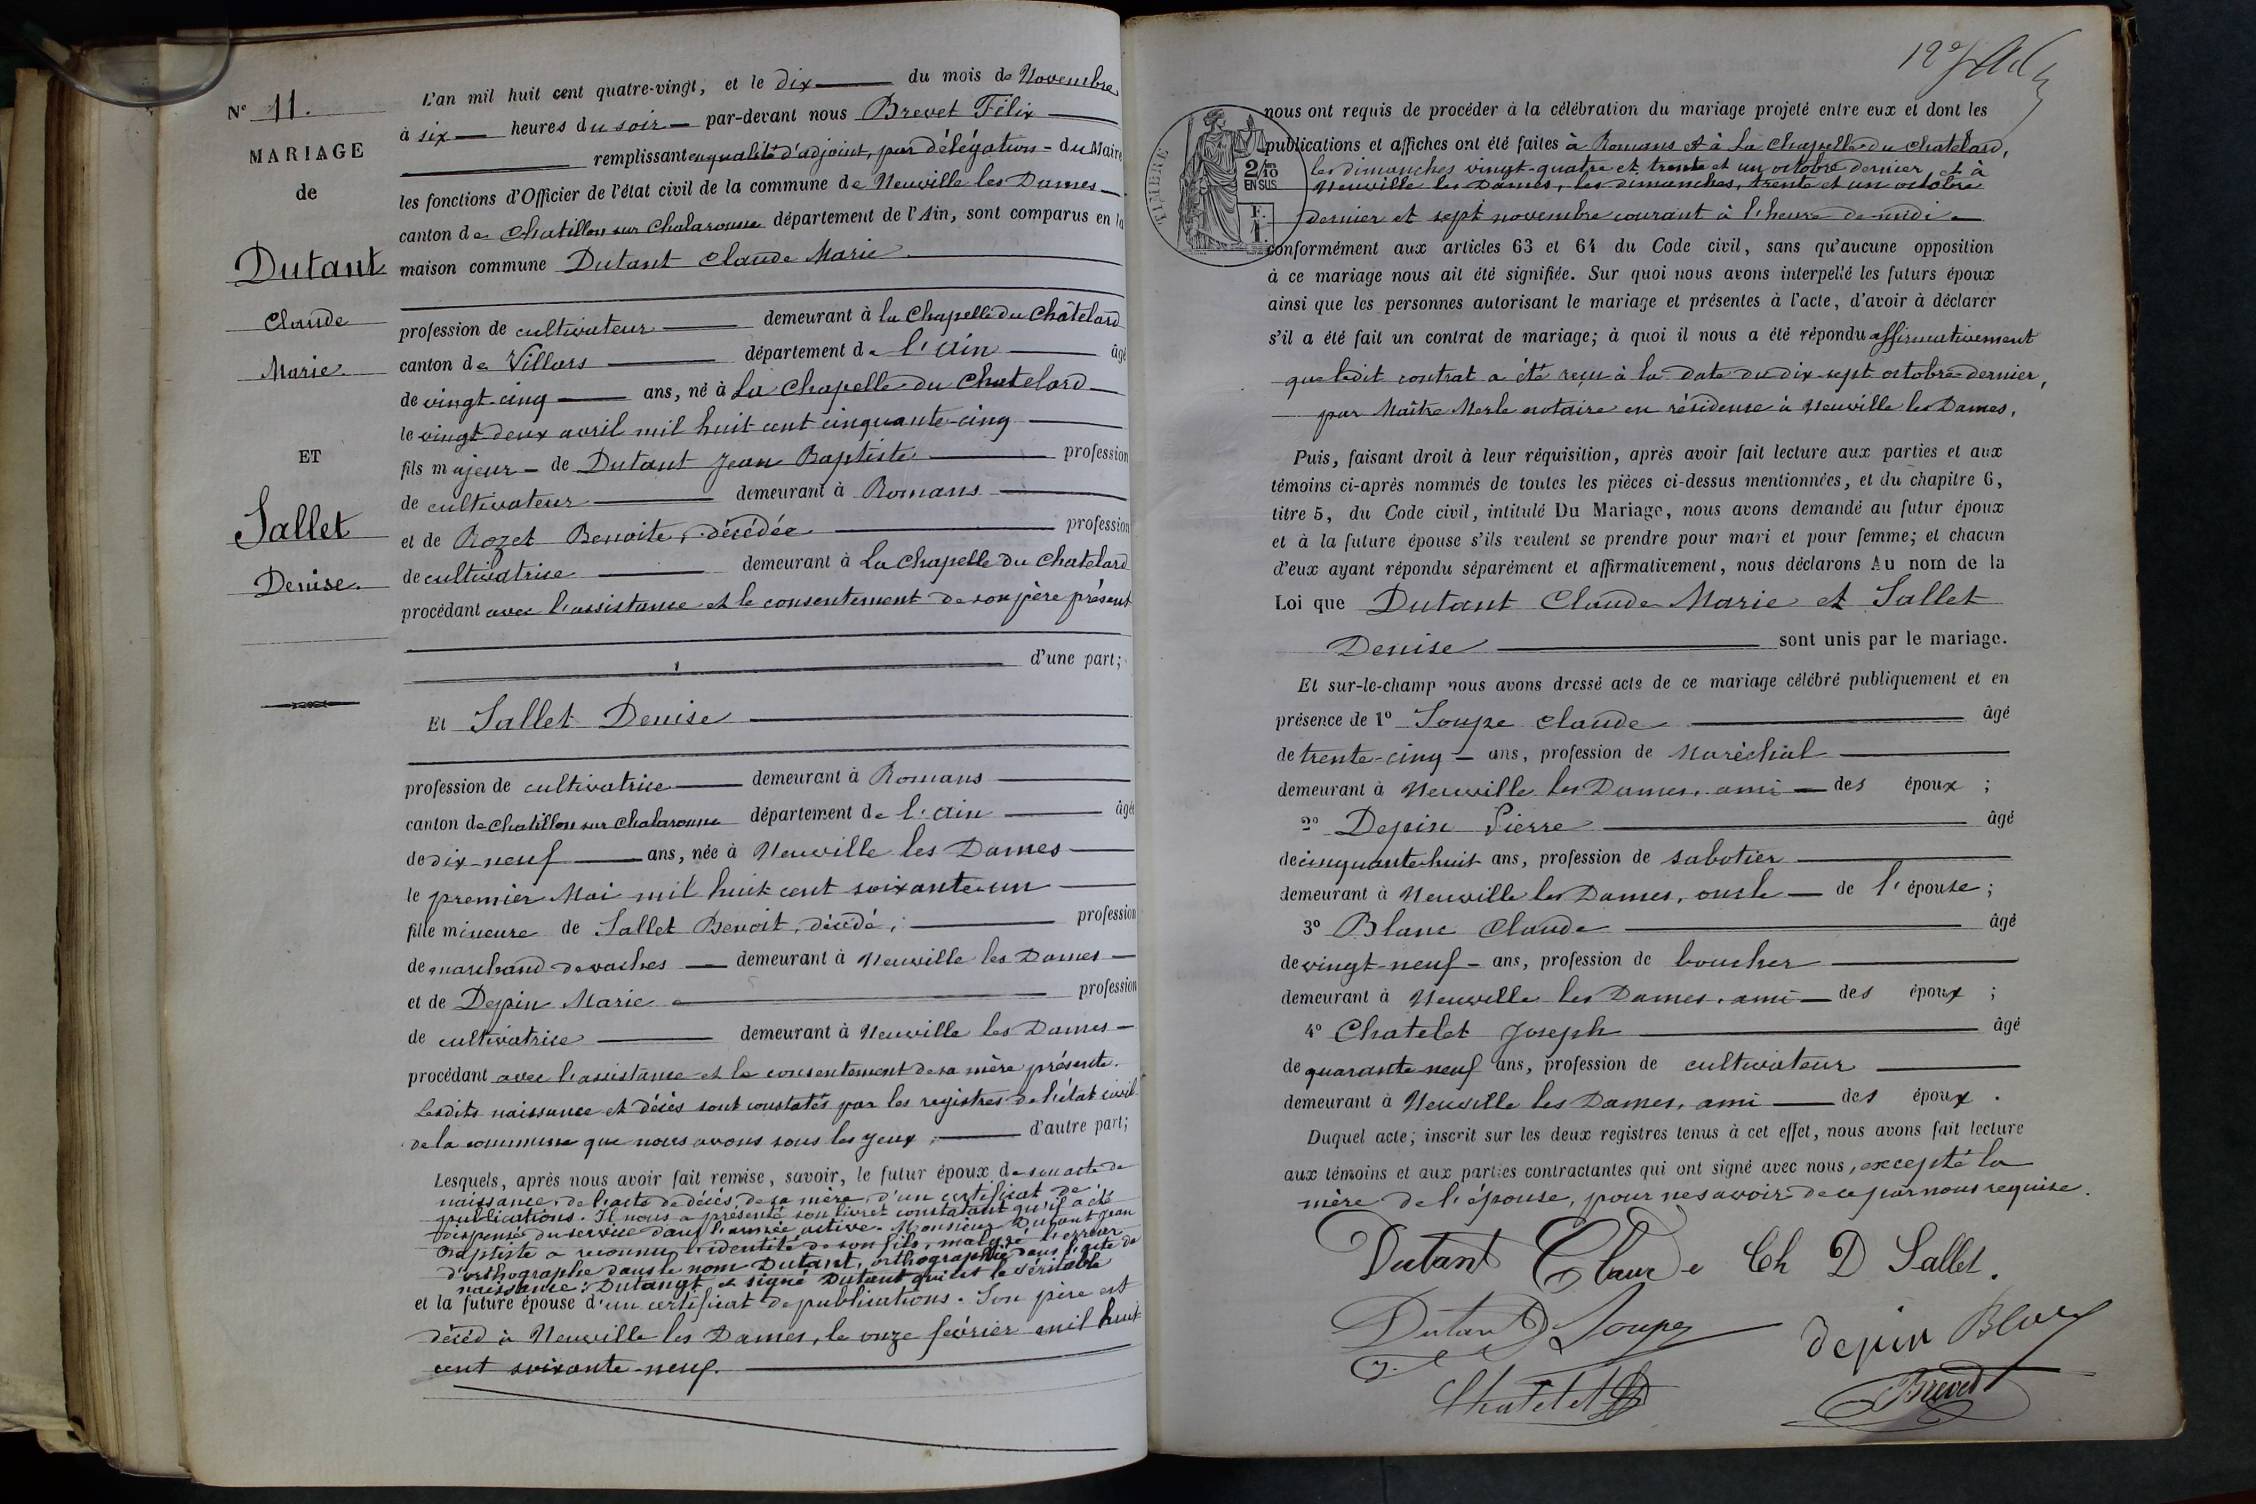 N° 11.
MARIAGE
de
Dutant
Claude
Marie
ET
Sallet
Denise.
L'an mil huit cent quatre-vingt, et le dix du mois de Novembre
à six heures du soir par-devant nous Brevet Félix
remplissant en qualité d'adjoint, par délégation du Maire
les fonctions d'Officier de l'état civil de la commune de Neuville les Dames
canton de Chatillon sur Chalaronne département de l'Ain, sont comparus en la
maison commune Dutant Claude Marie
profession de cultivateur demeurant à la Chapelle du Châtelard
canton de Villars département de l'Ain âgé
de vingt-cinq ans, né à La Chapelle du Chatelard
le vingt deux avril mil huit cent cinquante-cinq
fils majeur de Dutant Jean Baptiste profession
de cultivateur demeurant à Romans
et de Rozet Benoite, décédée profession
de cultivatrice demeurant à La Chapelle du Chatelard
procédant avec l'assistance et le consentement de son père présent
d'une part;
Et Sallet Denise
profession de cultivatrice demeurant à Romans
canton de Chatillon sur Chalaronne département de l'Ain âgée
de dix-neuf ans, née à Neuville les Dames
le premier Mai mil huit cent soixante-un
fille mineure de Sallet Benoit, décédé, profession
de marchand de vaches demeurant à Neuville les Dames
et de Depin Marie profession
de cultivatrice demeurant à Neuville les Dames
procédant avec l'assistance et le consentement de sa mère présente.
Lesdits naissance et décès sont constatés par les registres de l'état civil
de la commune que nous avons sous les yeux, d'autre part;
Lesquels, après nous avoir fait remise, savoir, le futur époux de son acte de
naissance, de l'acte de décès de sa mère, d'un certificat de
publications. Il nous a présenté son livret constatant qu'il a été
dispensé du service dans l'armée active. Monsieur Dutant Jean
Baptiste a reconnu l'identité de son fils, malgré l'erreur
d'orthographe dans le nom Dutant, orthographié dans l'acte de
naissance: Dutangt et signé Dutant qui est le véritable
et la future épouse d'un certificat de publications. Son père est
décéd à Neuville les Dames, le onze février mil huit
cent soixante-neuf.
TIMBRE
2/10
EN SUS
nous ont requis de procéder à la célébration du mariage projeté entre eux et dont les
publications et affiches ont été faites à Romans et à La Chapelle du Chatelard,
les dimanches vingt-quatre et trente et un octobre dernier et à
Neuville les Dames, les dimanches, trente et un octobre
dernier et sept novembre courant à l'heure de midi
conformément aux articles 63 et 64 du Code civil, sans qu'aucune opposition
à ce mariage nous ait été signifiée. Sur quoi nous avons interpellé les futurs époux
ainsi que les personnes autorisant le mariage et présentes à l'acte, d'avoir à déclarer
s'il a été fait un contrat de mariage; à quoi il nous a été répondu affirmativement
que ledit contrat a été reçu à la date du dix-sept octobre dernier,
par Maître Merle notaire en résidence à Neuville les Dames.
Puis, faisant droit à leur réquisition, après avoir fait lecture aux parties et aux
témoins ci-après nommés de toutes les pièces ci-dessus mentionnées, et du chapitre 6,
titre 5, du Code civil, intitulé Du Mariage, nous avons demandé au futur époux
et à la future épouse s'ils veulent se prendre pour mari et pour femme; et chacun
d'eux ayant répondu séparément et affirmativement, nous déclarons Au nom de la
Loi que Dutant Claude Marie et Sallet
Denise sont unis par le mariage.
Et sur-le-champ nous avons dressé acte de ce mariage célébré publiquement et en
présence de 1° Soupe Claude âgé
de trente-cinq ans, profession de Maréchal
demeurant à Neuville les Dames, ami des époux;
2° Depin Pierre âgé
de cinquante-huit ans, profession de sabotier
demeurant à Neuville les Dames, oncle de l'épouse;
3° Blanc Claude âgé
de vingt-neuf ans, profession de boucher
demeurant à Neuville les Dames, ami des époux;
4° Chatelet Joseph âgé
de quarante neuf ans, profession de cultivateur
demeurant à Neuville les Dames, ami des époux.
Duquel acte; inscrit sur les deux registres tenus à cet effet, nous avons fait lecture
aux témoins et aux parties contractantes qui ont signé avec nous, excepté la
mère de l'épouse, pour ne savoir de ce par nous requise.
Dutant Claude Ch D Sallet.
Dutant Soupe depin Blanc
Chatelet Brevet